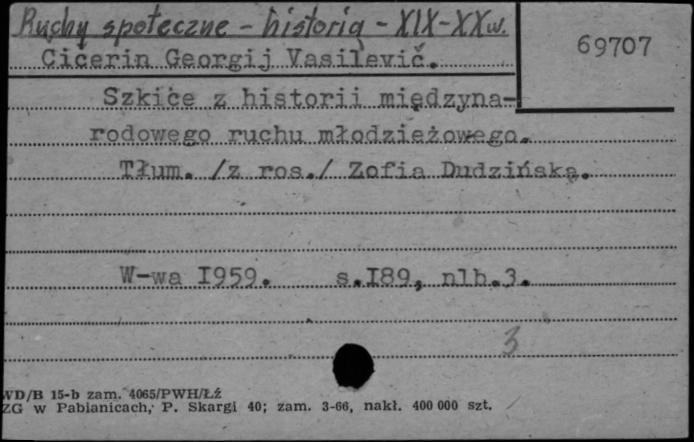 Ruchy społeczne - historia - XIX-XXw.
69707
Cicerin Georgij Vasilevič.
Szkice z historii międzyna-
rodowego ruchu młodzieżowego.
Tłum. /z ros./ Zofia Dudzińska.
W-wa I959. s.I89, nlb.3.
3
WD/B 15-b zam. 4065/PWH/Łź
ZG w Pabianicach, P. Skargi 40; zam. 3-66, nakł. 400 000 szt.